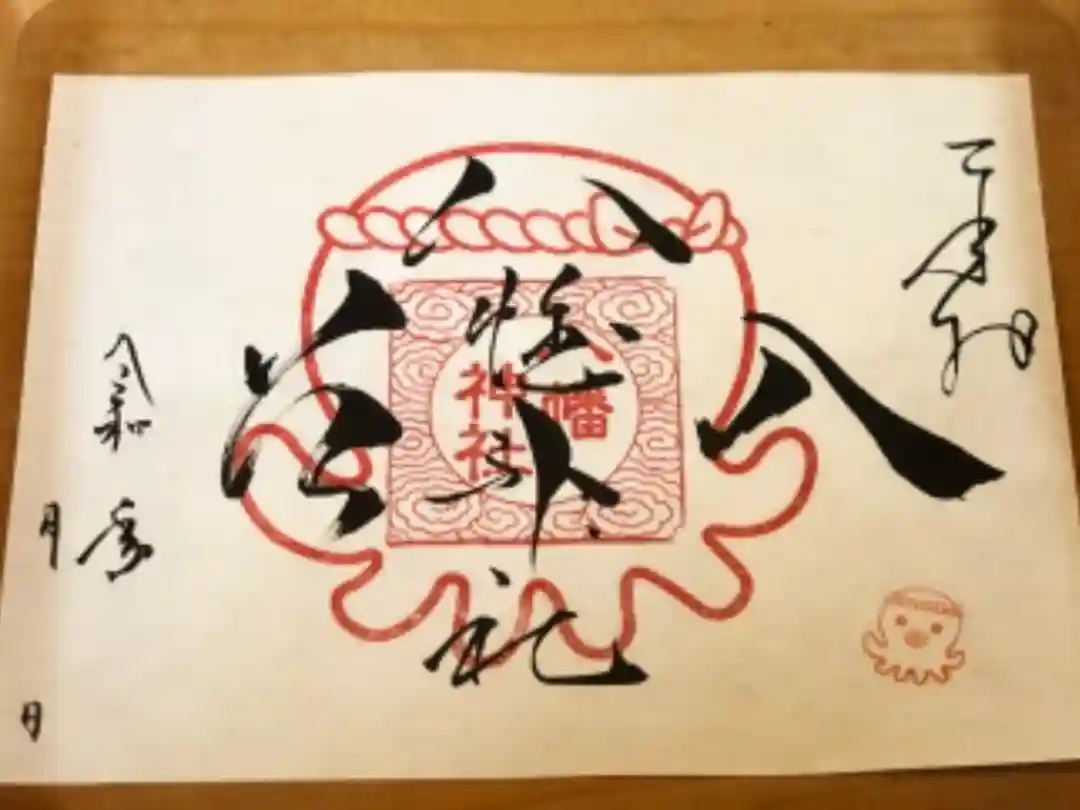 奉拝
八
八幡神社
八幡
神社
令和 年
月 日